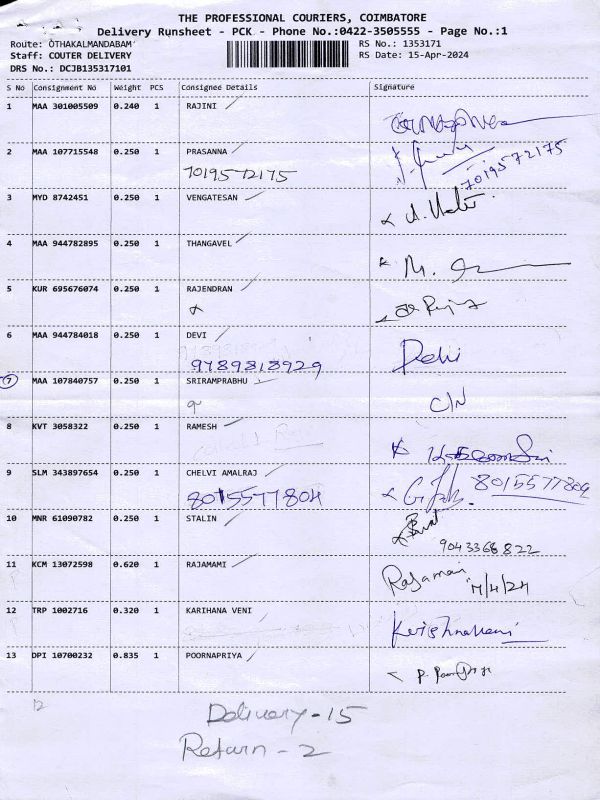 THE PROFESSIONAL COURIERS, COIMBATORE
Delivery Runsheet - PCK - Phone No.:0422-3505555 - Page No.:1
Route: OTHAKALMANDABAM RS No.: 1353171
Staff: COUTER DELIVERY RS Date: 15-Apr-2024
DRS No.: DCJB135317101
S No Consignment No Weight PCS Consigned Details Signature
1 MAA 301005509 0.240 1 RAJINI
2 MAA 107715548 0.250 1 PRASANNA
7019572175 7019572175
3 MYD 8742451 0.250 1 VENGATESAN
4 MAA 944782895 0.250 1 THANGAVEL
M.
5 KUR 695676074 0.250 1 RAJENDRAN
6 MAA 944784018 0.250 1 DEVI
9789818929 Debi
7 MAA 107840757 0.250 1 SRIRAMPRABHU
C/N
8 KVT 3058322 0.250 1 RAMESH
9 SLM 343897654 0.250 1 CHELVI AMALRAJ
8015577804 8015577804
10 MNR 61090782 0.250 1 STALIN
9043366822
11 KCM 13072598 0.620 1 RAJAMAMI
Rajamani 17/4/24
12 TRP 1002716 0.320 1 KARIHANA VENI
Krishnaveni
13 DPI 10700232 0.835 1 POORNAPRIYA
12
Delivery - 15
Return - 2